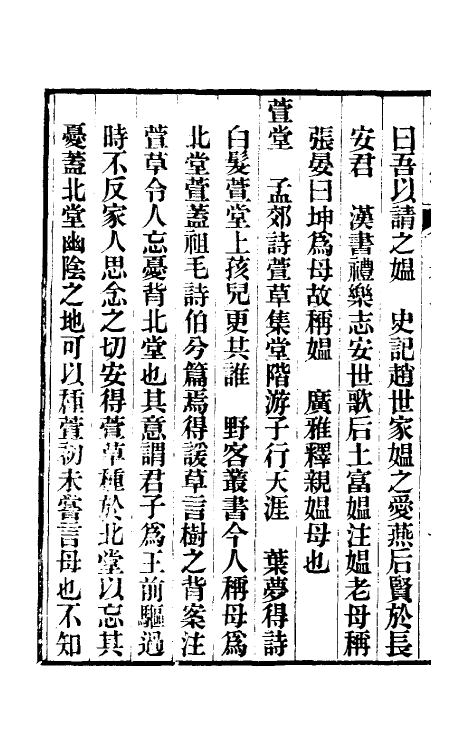 曰吾以請之媼　史記趙世家媼之愛燕后賢於長
安君　漢書禮樂志安世歌后土富媼注媼老母稱
張晏曰坤爲母故稱媼　廣雅釋親媼母也
萱堂　孟郊詩萱草集堂階游子行天涯　葉夢得詩
白髮萱堂上孩兒更其誰　野客叢書今人稱母爲
北堂萱蓋祖毛詩伯兮篇焉得諼草言樹之背案注
萱草令人忘憂背北堂也其意謂君子爲王前驅過
時不反家人思念之切安得萱草種於北堂以忘其
憂蓋北堂幽陰之地可以種萱初未嘗言母也不知